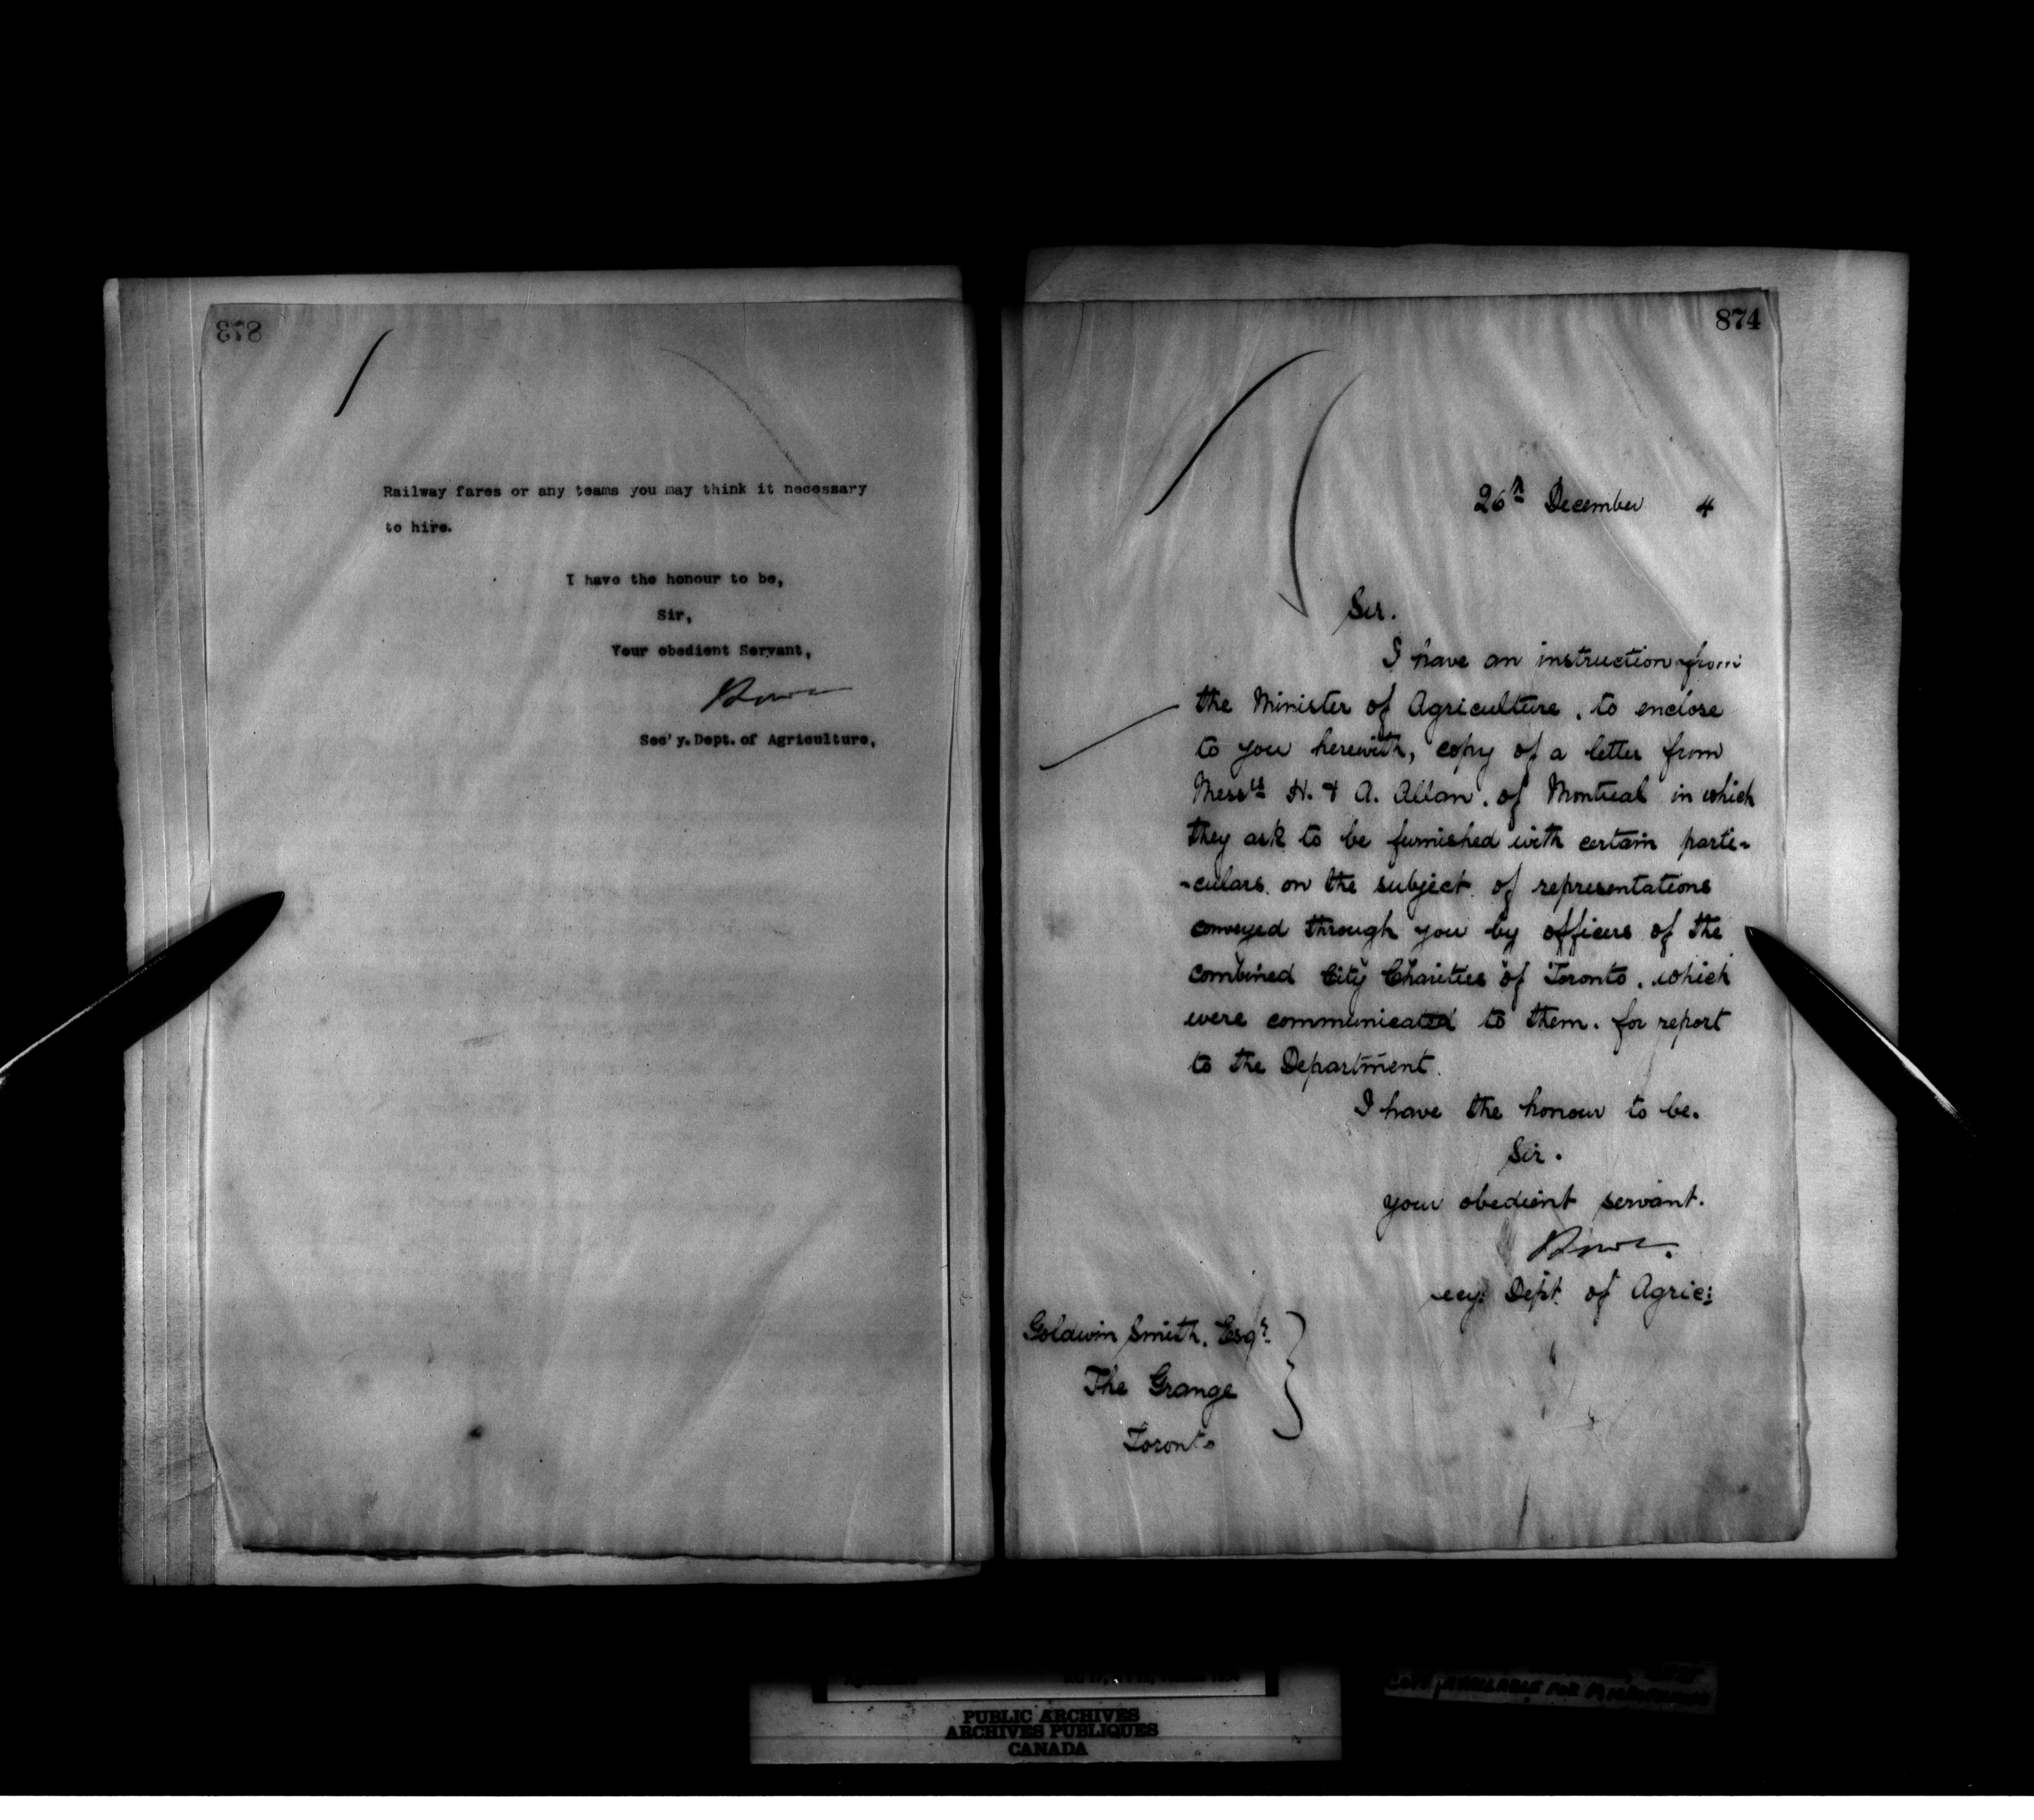 873
Railway fares or any teams you may think it necessary
to hire.
I have the honour to be,
Sir,
Your obedient Servant,
Sec'y. Dept. of Agriculture,
874
26th December 4
Sir.
I have an instruction from
the Minister of Agriculture, to enclose
to you herewith, copy of a letter from
Messrs H. & A. Allan. of Montreal in which
they ask to be furnished with certain parti-
-culars. on the subject of representations
conveyed through you by officers of the
combined City Charities of Toronto. which
were communicated to them. for report
to the Department.
I have the honour to be.
Sir.
your obedient servant.
ecy: Dept. of Agric:
Goldwin Smith. Esqr.
The Grange
Toronto
PUBLIC ARCHIVES
ARCHIVES PUBLIQUES
CANADA